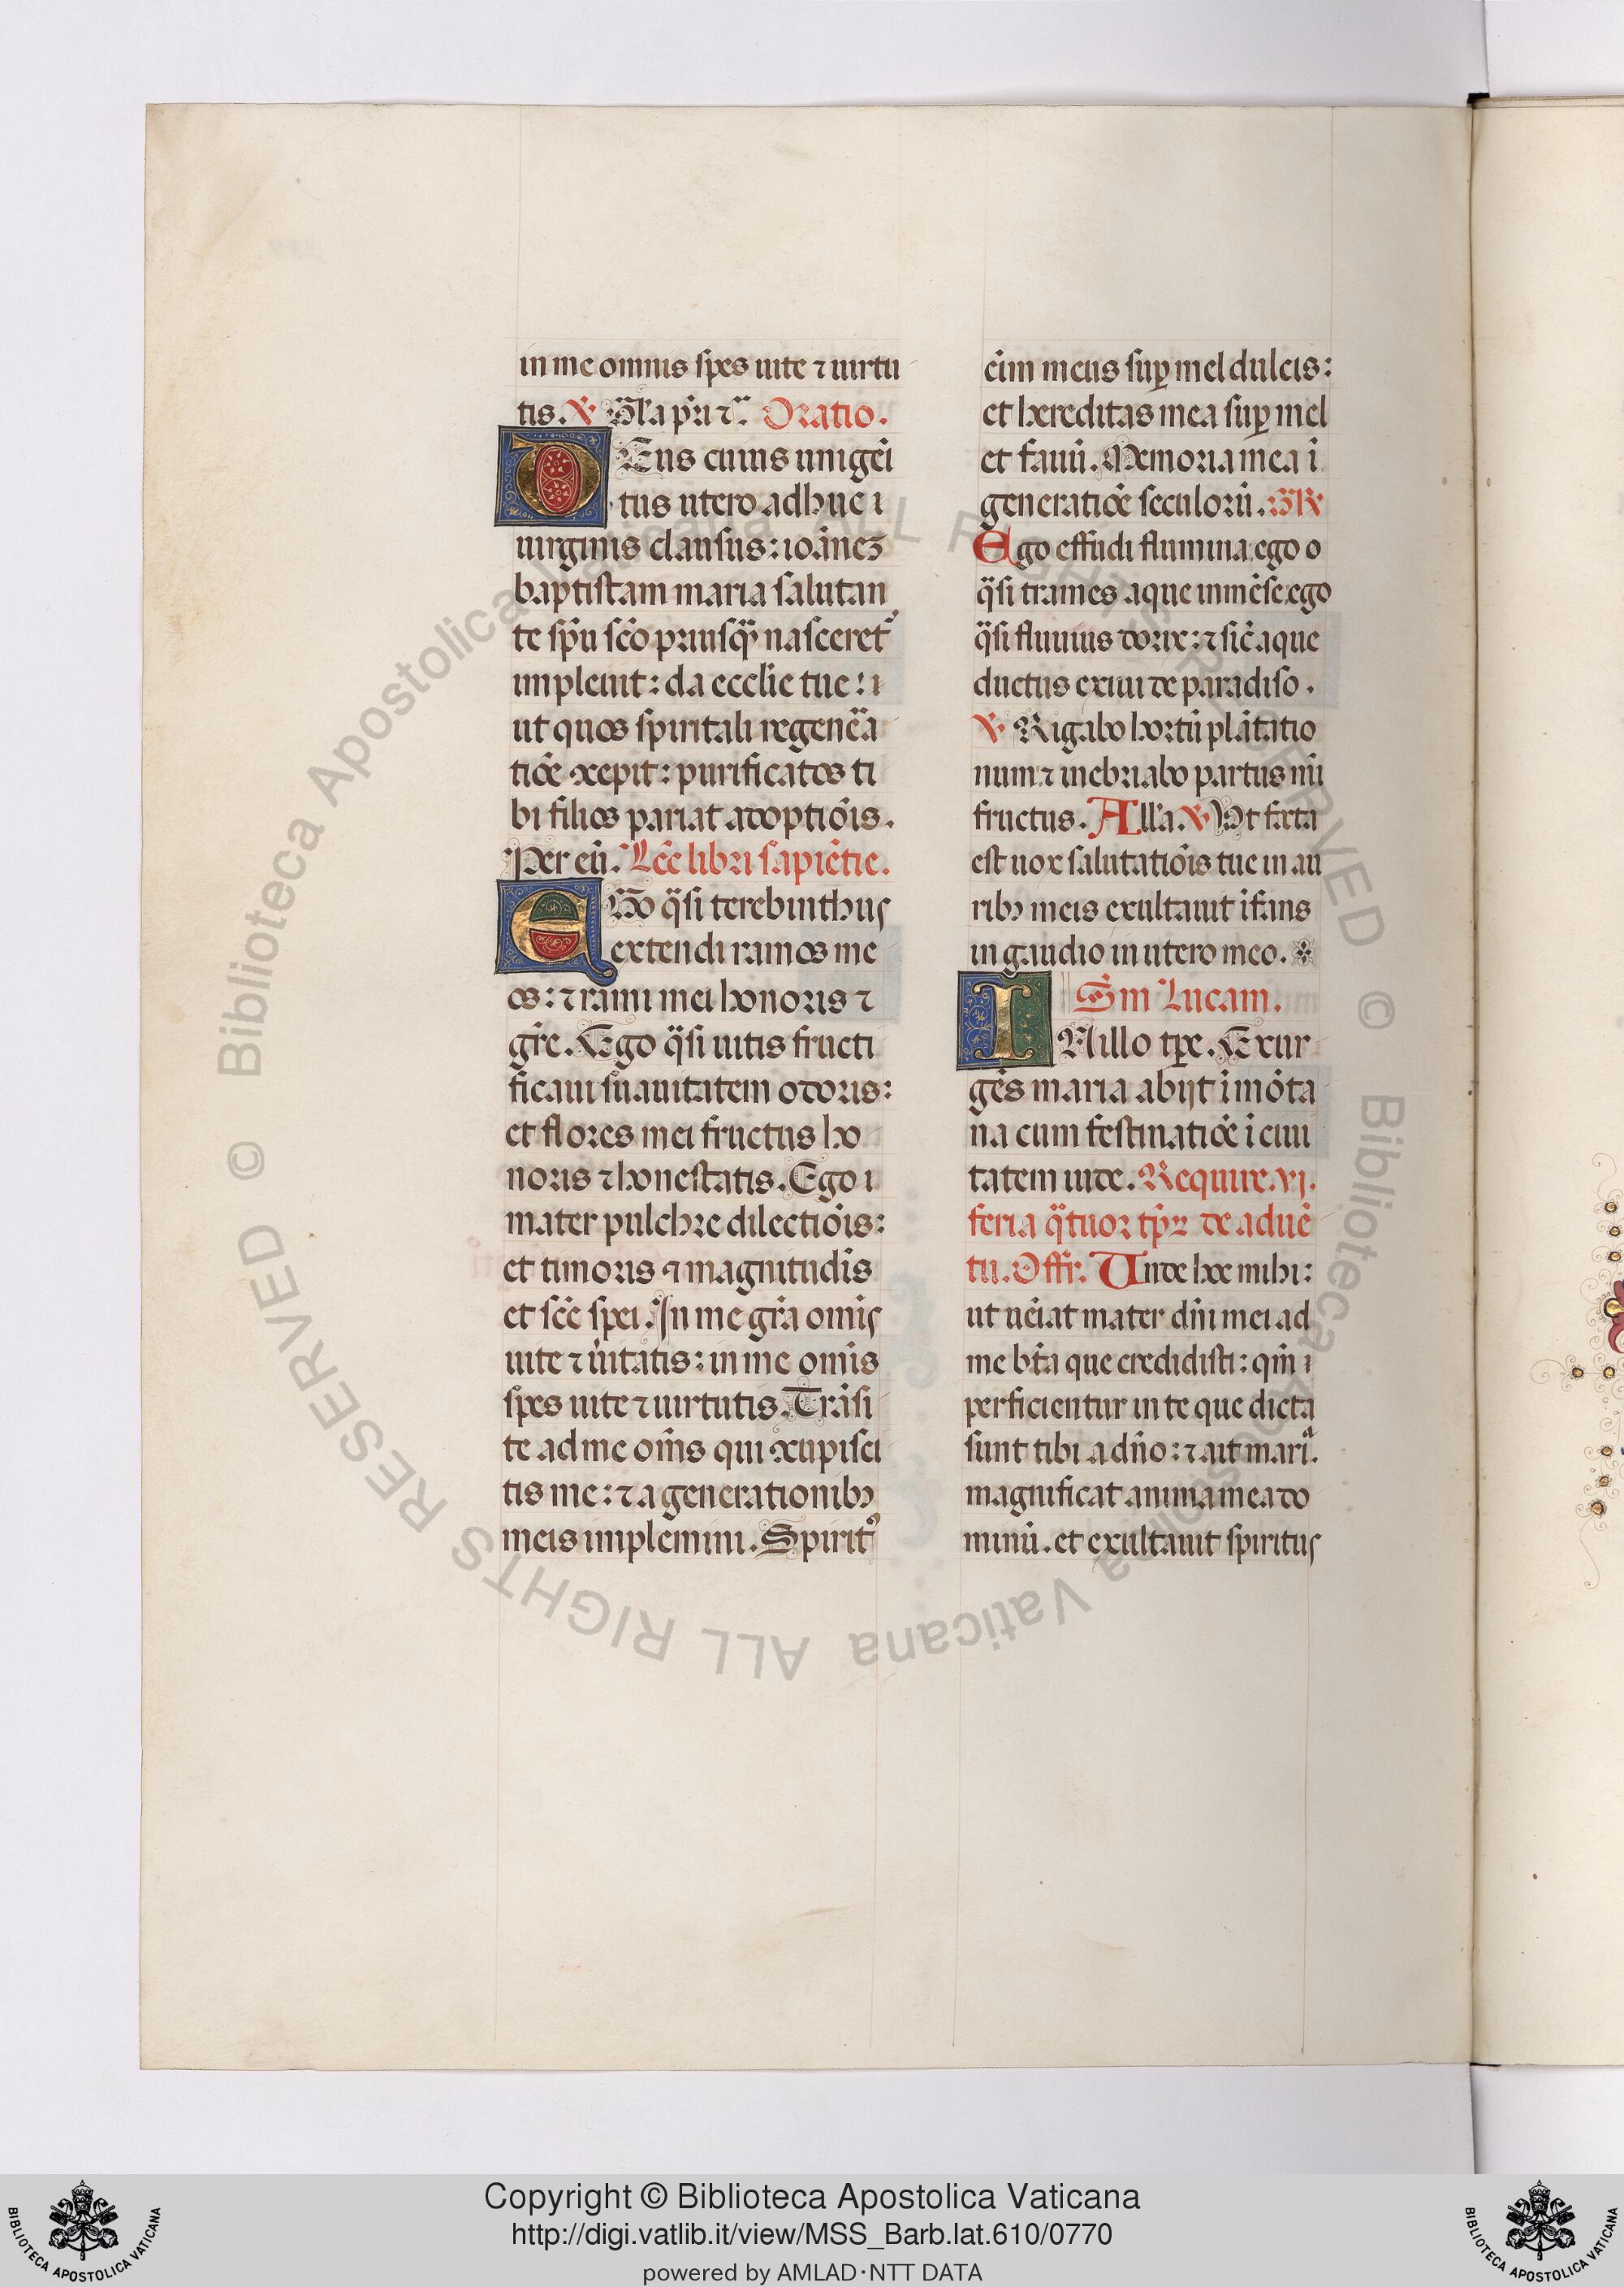 in me omnis spes uite ⁊ uirtu
tis. ℣ Gl'a pr̄i ⁊c̄. Oratio.
DEus cuius unigēi
tus utero adhuc i
uirginis clausus: ioānez
baptistam maria salutan
te spū scō priusq̄ nasceret᷑
impleuit: da ecclie tue: i
ut quos spiritali regen̄a
tiōe cepit: purificatos ti
bi filios pariat adoptiōis.
Per eū. Lēc libri sapiētie.
EGo q̄si terebinthus
extendi ramos me
os: ⁊ rami mei honoris ⁊
gr̄e. Ego q̄si uitis fructi
ficaui suauitatem odoris:
et flores mei fructus ho
noris ⁊ honestatis. Ego i
mater pulchre dilectiōis:
et timoris ⁊ magnitudīs
et scē spei. In me gr̄a omīs
uite ⁊ ūitatis: in me omīs
spes uite ⁊ uirtutis. Trāsi
te ad me om̄s qui cupisci
tis me: ⁊ a generationibꝰ
meis implemini. Spiritꝰ
eīm meus suꝑ mel dulcis:
et hereditas mea suꝑ mel
et fauū. Memoria mea i
generatiōe seculorū. GR̄
Ego effudi flumina. ego o
q̄si trames aque inmēse. ego
q̄si fluuius dorix: ⁊ sic̄ aque
ductus exiui de paradiso.
℣ Rigabo hortū plātatio
num ⁊ inebriabo partus mī
fructus. All'a. ℣ Ut facta
est uox salutatiōis tue in au
ribꝰ meis exultauit īfans
in gaudio in utero meo.
Sm̄ Lucam.
IN illo tp̄e. Exur
gēs maria abijt ī mōta
na cum festinatiōe ī ciui
tatem iude. Require. vj.
feria q̄tuor tp̄ꝝ de aduē
tu. Offr̄. Unde hoc mihi:
ut uēiat mater dn̄i mei ad
me bt̄a que credidisti: qm̄ i
perficientur in te que dicta
sunt tibi a dn̄o: ⁊ ait mariᵃ.
magnificat anima mea do
minū. et exultauit spiritus
© Biblioteca Apostolica Vaticana ALL RIGHTS RESERVED © Biblioteca Apostolica Vaticana ALL RIGHTS RESERVED
Copyright © Biblioteca Apostolica Vaticana
http://digi.vatlib.it/view/MSS_Barb.lat.610/0770
powered by AMLAD·NTT DATA
BIBLIOTECA APOSTOLICA VATICANA
BIBLIOTECA APOSTOLICA VATICANA